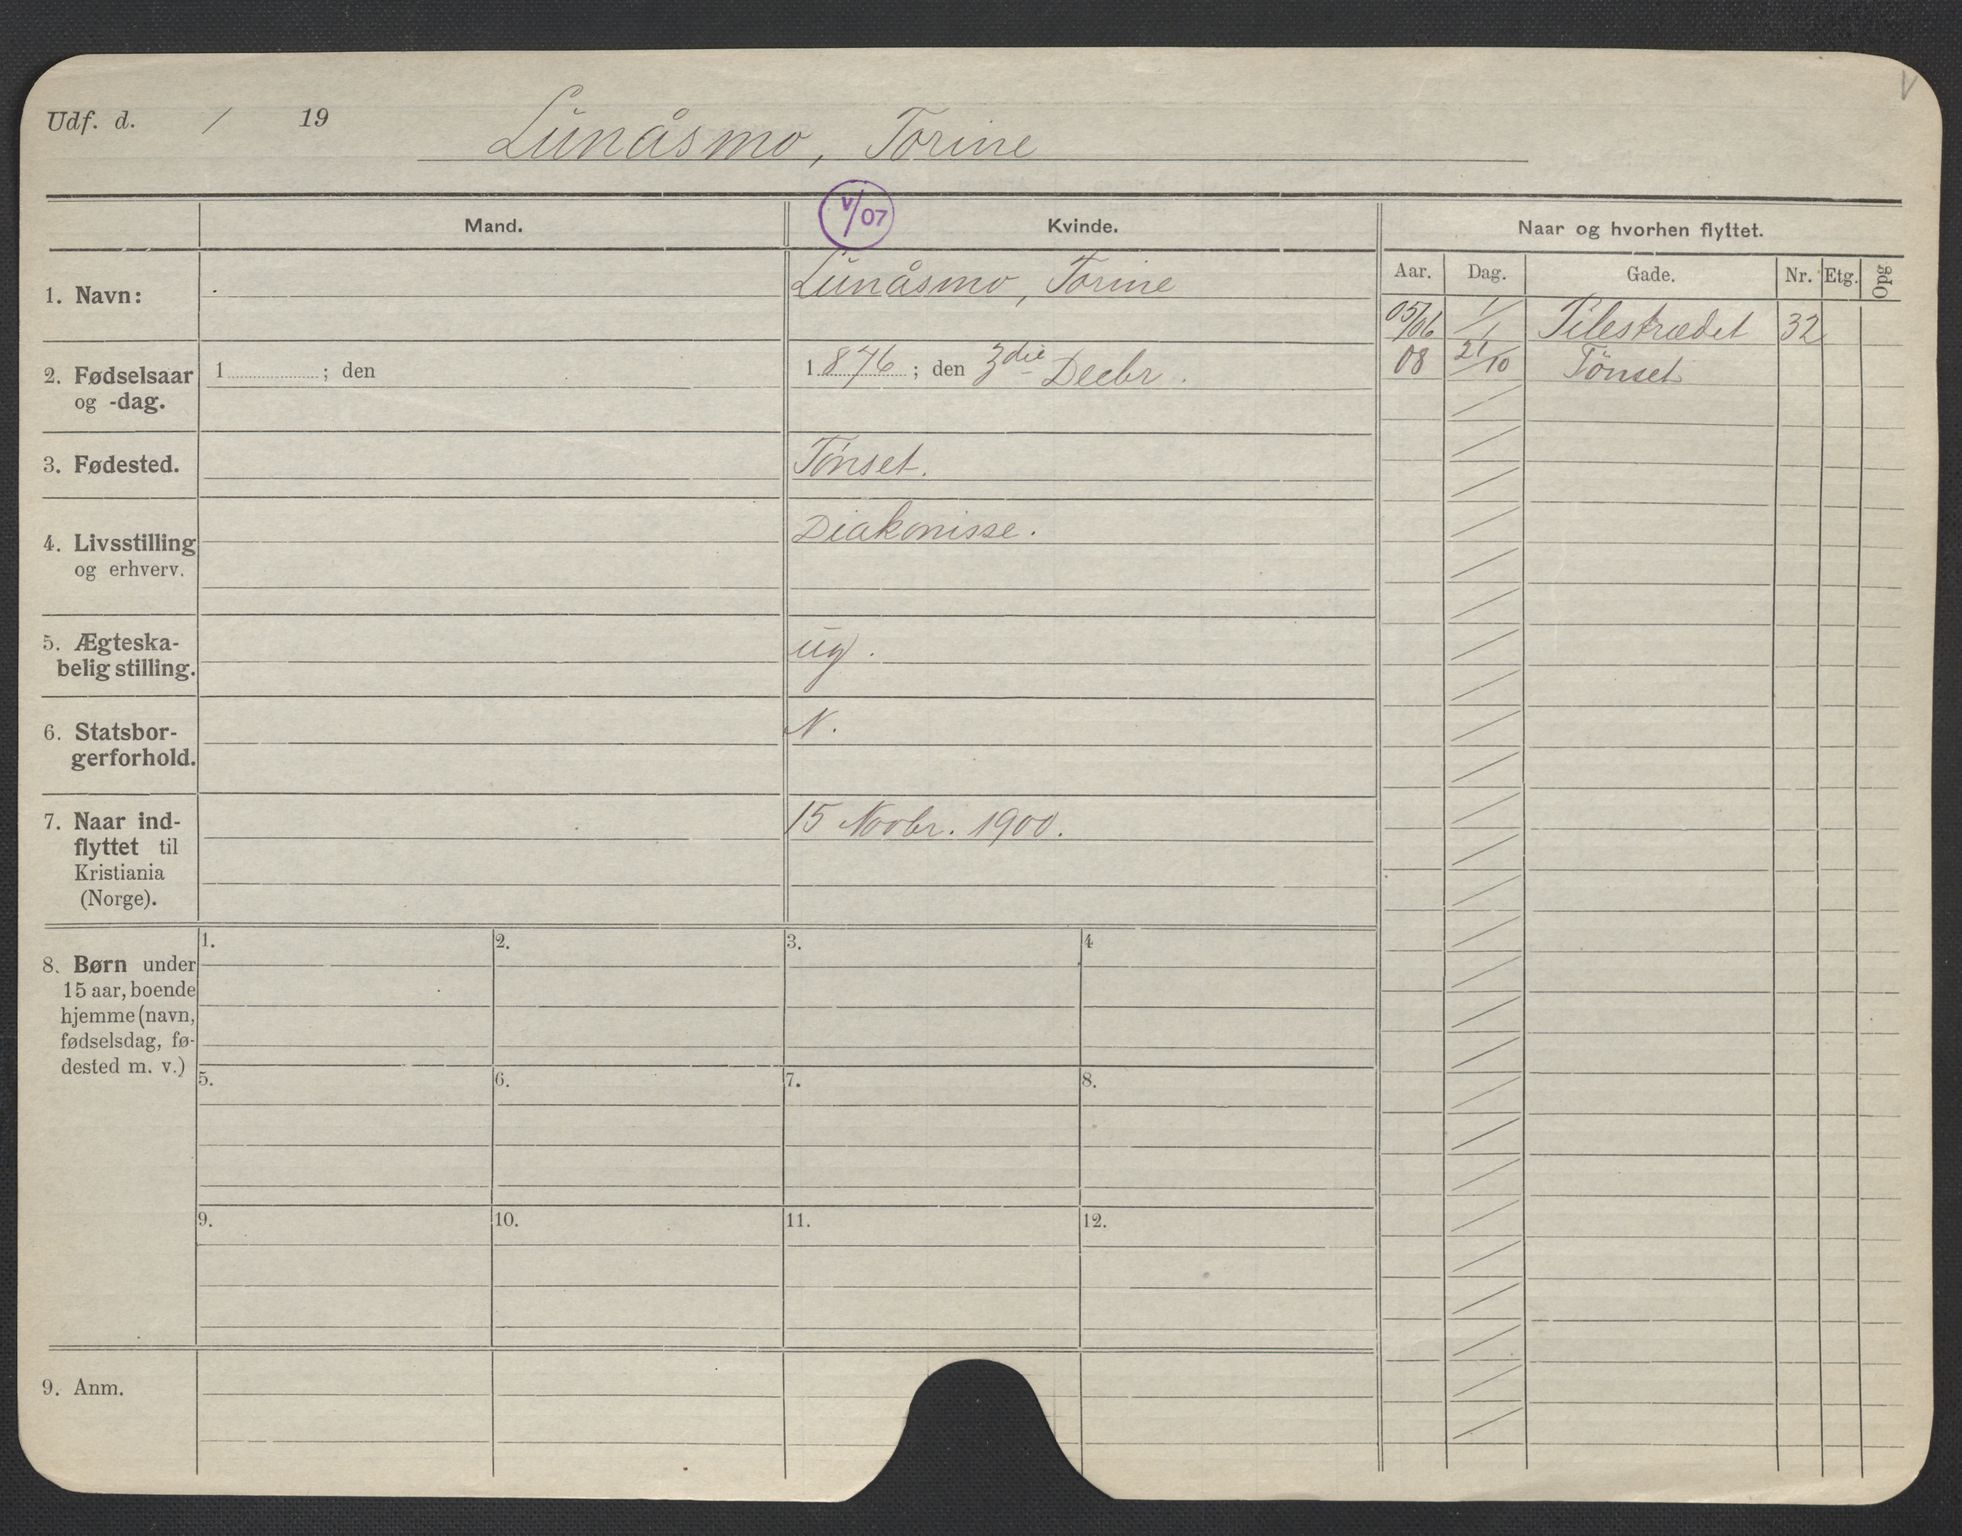 Udf. d. / 19 Lunåsmo, Torine
V/07
Mand. Kvinde. Naar og hvorhen flyttet.
Aar. Dag. Gade. Nr. Etg. Opg
1. Navn: Lunåsmo, Torine
05/06 1/1 Pilestrædet 32
08 21/10 Tønset
2. Fødselsaar og -dag. 1 ; den 1876 ; den 3die Decbr.
3. Fødested. Tönset.
4. Livsstilling og erhverv. Diakonisse.
5. Ægteskabelig stilling. ug.
6. Statsborgerforhold. N.
7. Naar indflyttet til Kristiania (Norge). 15 Novbr. 1900.
8. Børn under 15 aar, boende hjemme (navn, fødselsdag, fødested m. v.)
1. 2. 3. 4
5. 6. 7. 8.
9. 10. 11. 12.
9. Anm.